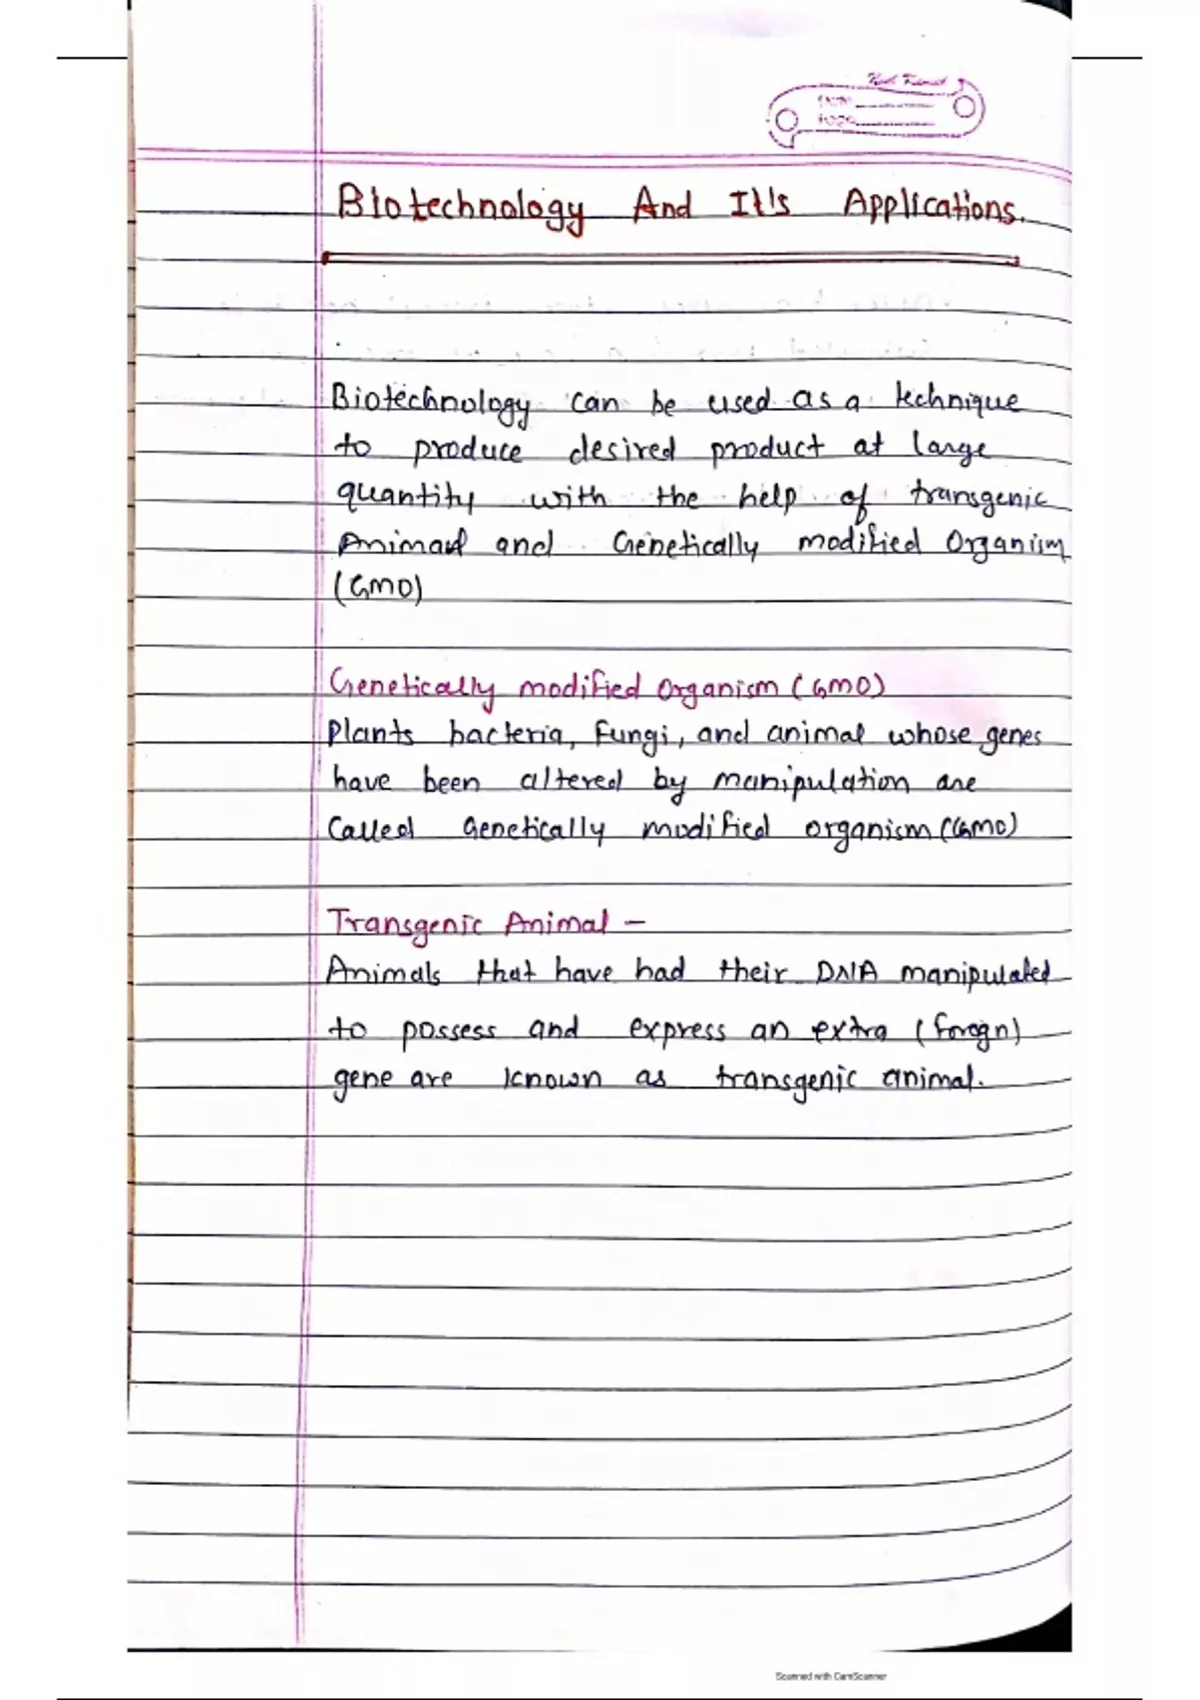 Biotechnology And It's Applications.
Biotechnology can be used as a technique
to produce desired product at large
quantity with the help of transgenic
and Genetically modified Organism
(GMO)
Genetically modified Organism (GMO)
Plants bacteria, Fungi, and animal whose genes
have been altered by manipulation are
Called Genetically modified organism (GMO)
Transgenic Animal –
Animals that have had their DNA manipulated
to possess and express an extra (foregn)
gene are known as transgenic animal.
Scanned with CamScanner